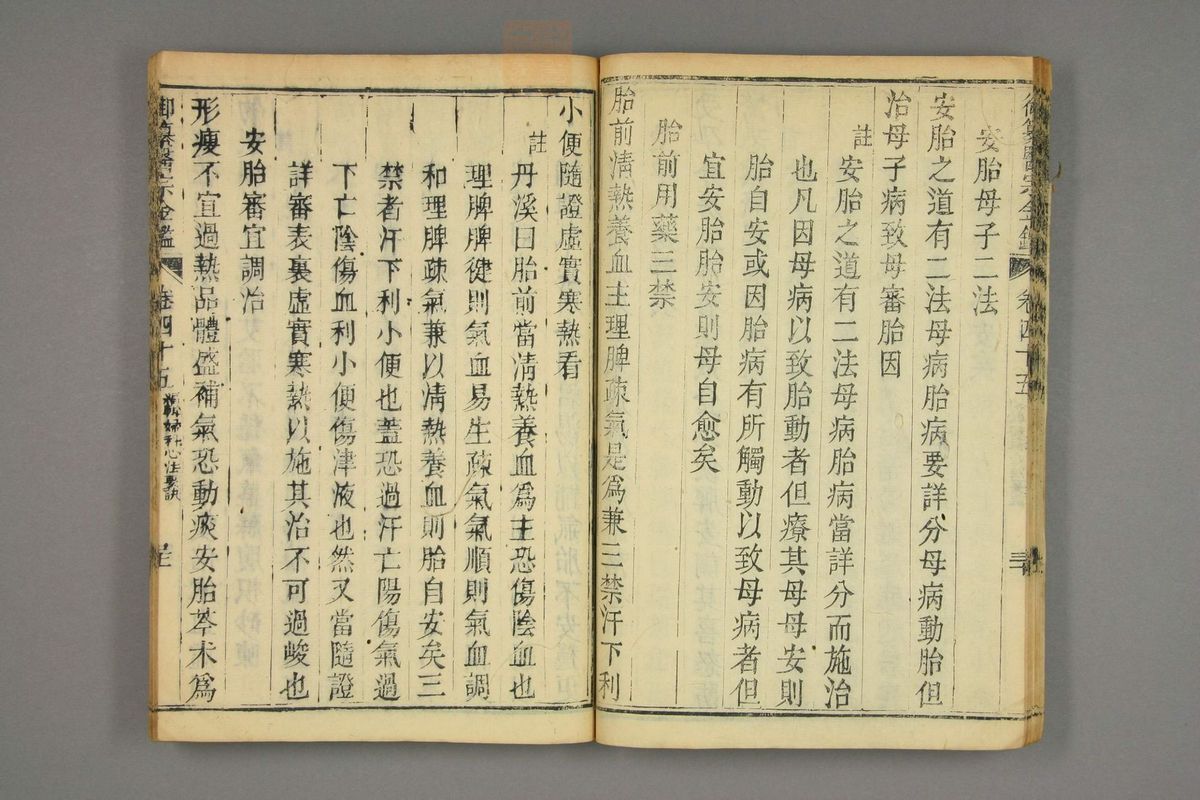 御纂醫宗金鑑 卷四十五
安胎母子二法
安胎之道有二法母病胎病要詳分母病動胎但
治母子病致母審胎因
註
安胎之道有二法母病胎病當詳分而施治
也凡因母病以致胎動者但療其母母安則
胎自安或因胎病有所觸動以致母病者但
宜安胎胎安則母自愈矣
胎前用藥三禁
胎前淸熱養血主理脾疎氣是爲兼三禁汗下利
小便隨證虛實寒熱看
註
丹溪曰胎前當淸熱養血爲主恐傷陰血也
理脾脾健則氣血易生疎氣氣順則氣血調
和理脾疎氣兼以淸熱養血則胎自安矣三
禁者汗下利小便也蓋恐過汗亡陽傷氣過
下亡陰傷血利小便傷津液也然又當隨證
詳審表裏虛實寒熱以施其治不可過峻也
安胎審宜調治
形瘦不宜過熱品體盛補氣恐動痰安胎芩朮爲
御纂醫宗金鑑 卷四十五 婦科心法要訣